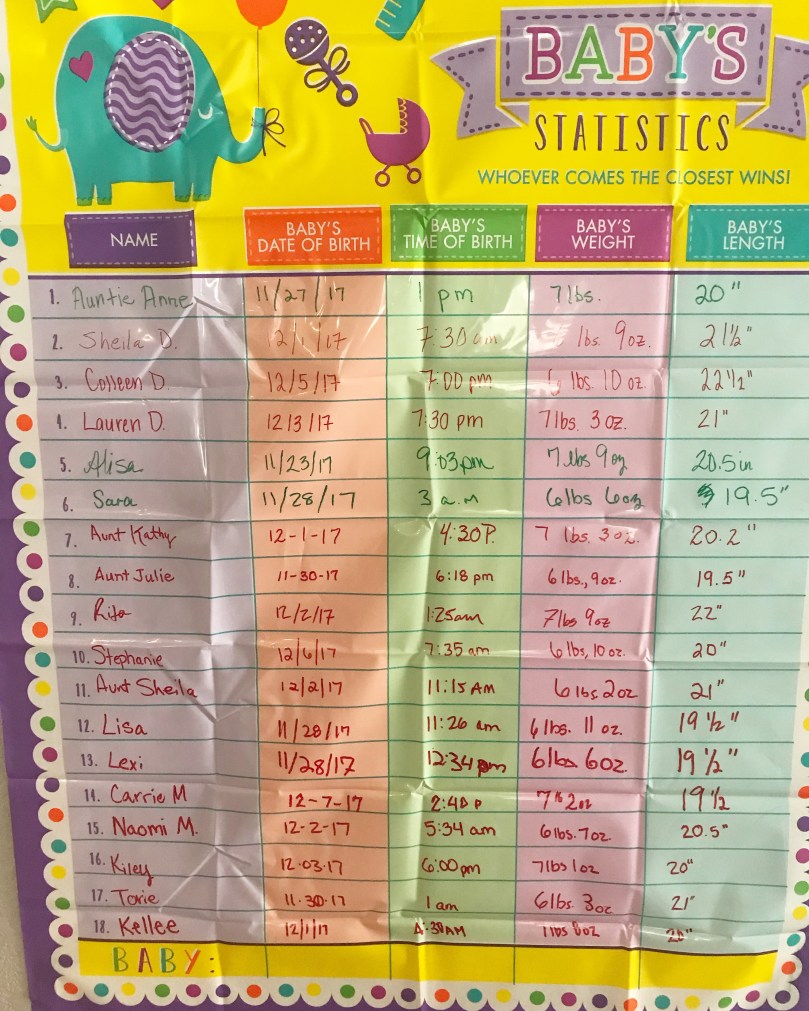 BABY'S
STATISTICS
WHOEVER COMES THE CLOSEST WINS!
NAME BABY'S DATE OF BIRTH BABY'S TIME OF BIRTH BABY'S WEIGHT BABY'S LENGTH
1. Auntie Anne 11/27/17 1 pm 7 lbs. 20"
2. Sheila D. 12/1/17 7:30 am lbs. 9oz. 21½"
3. Colleen D. 12/5/17 7:00 pm lbs. 10 oz. 22½"
4. Lauren D. 12/3/17 7:30 pm 7lbs. 3 oz. 21"
5. Alisa 11/23/17 9:03pm 7 lbs 9oz 20.5in
6. Sara 11/28/17 3 a.m 6lbs 6oz 19.5"
7. Aunt Kathy 12-1-17 4:30P. 7 lbs. 3oz. 20.2"
8. Aunt Julie 11-30-17 6:18 pm 6 lbs., 9oz. 19.5"
9. Rita 12/2/17 1:25am 7lbs 9oz 22"
10. Stephanie 12/6/17 7:35 am 6 lbs, 10 oz. 20"
11. Aunt Sheila 12/2/17 11:15 AM 6 lbs 2oz 21"
12. Lisa 11/28/17 11:26 am 6 lbs. 11 oz. 19 ½"
13. Lexi 11/28/17 12:34 pm 6lbs 6oz. 19 ½"
14. Carrie M 12-7-17 2:40 P 7 lb 2oz 19 ½
15. Naomi M. 12-2-17 5:34 am 6 lbs. 7oz. 20.5"
16. Kiley 12.03.17 6:00pm 7lbs 1oz 20"
17. Torie 11.30.17 1 am 6lbs. 3oz 21"
18. Kellee 12/1/17 4:30AM 7 lbs 8oz 20"
BABY: